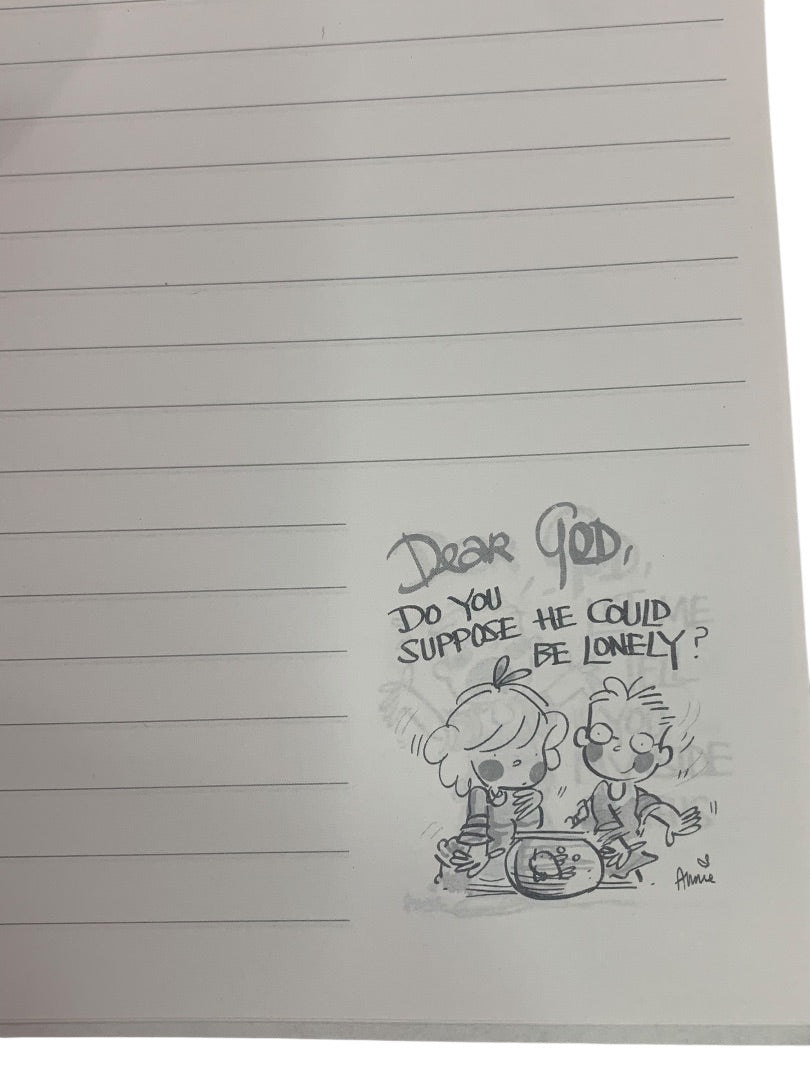 Dear GOD,
DO YOU
SUPPOSE HE COULD
BE LONELY?
Annie